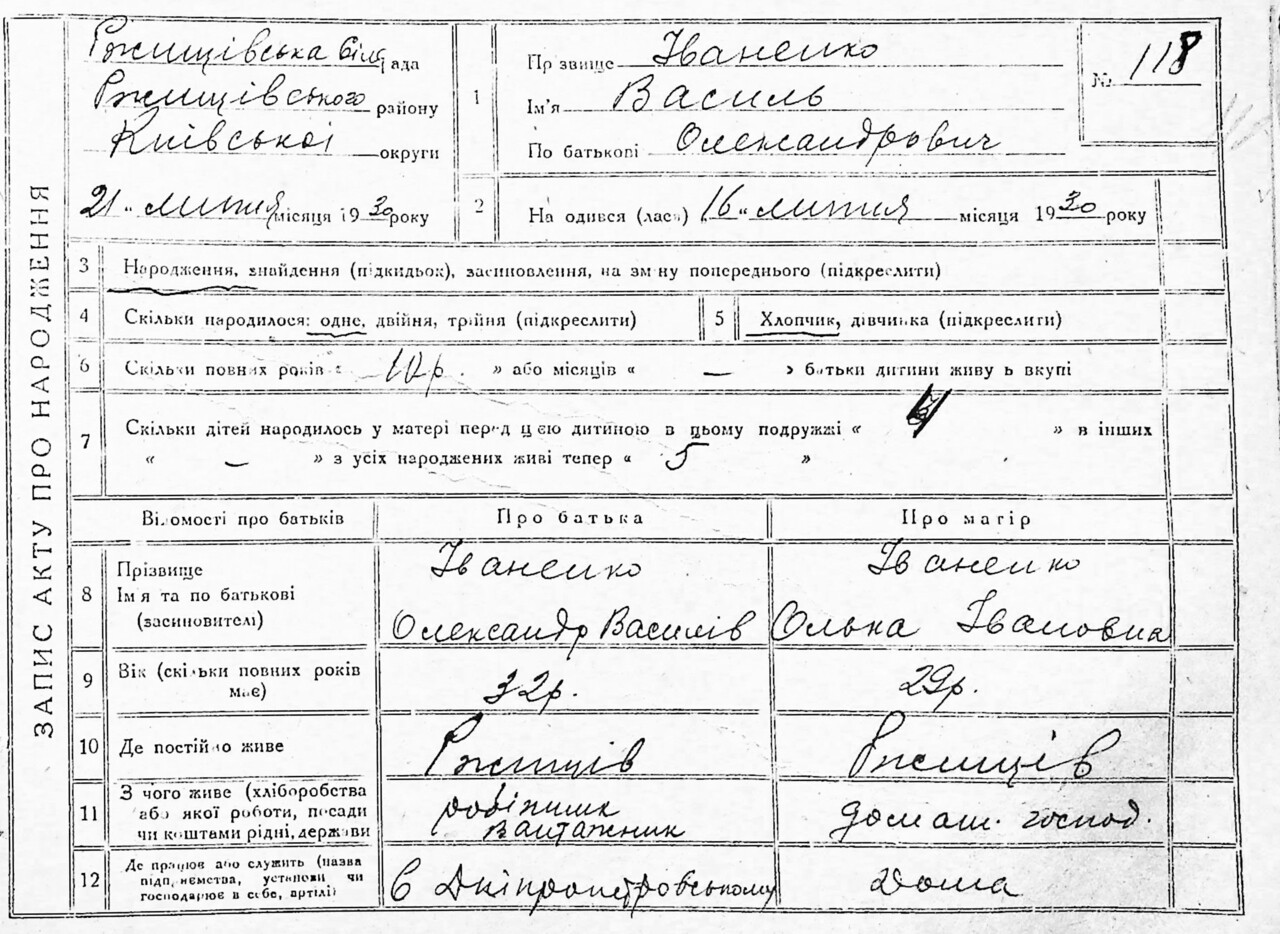 ЗАПИС АКТУ ПРО НАРОДЖЕННЯ
Ржищівська ада
Ржищівського району
Київської округи
21 " липня місяця 1930 року
1
Пр звище Іваненко
Ім'я Василь
По батькові Олександрович
№ 118
2
На одився (лась) 16 " липня місяця 1930 року
3 Народження, знайдення (підкидьок), засиновлення, на зм ну попереднього (підкреслити)
4 Скільки народилося: одне, двійня, трійня (підкреслити)
5 Хлопчик, дівчинка (підкреслити)
6 Скільки повних років « 10 р. » або місяців « — » батьки дитини живу ь вкупі
7 Скільки дітей народилось у матері перед цією дитиною в цьому подружжі « » в інших
« — » з усіх народжених живі тепер « 5 »
Відомості про батьків
Про батька
Про матір
8 Прізвище
Ім'я та по батькові
(засиновителі)
Іваненко
Олександр Василів
Іваненко
Олька Івановна
9 Вік (скільки повних років
має)
32р.
29р.
10 Де постійно живе
Ржищів
Ржищів
11 З чого живе (хліборобства
або якої роботи, посади
чи коштами рідні, держави
вантажник
домаш. господ.
12 Де працює або служить (назва
підп, иємства, установи чи
господарює в себе, артілі)
в Дніпропетровському
дома